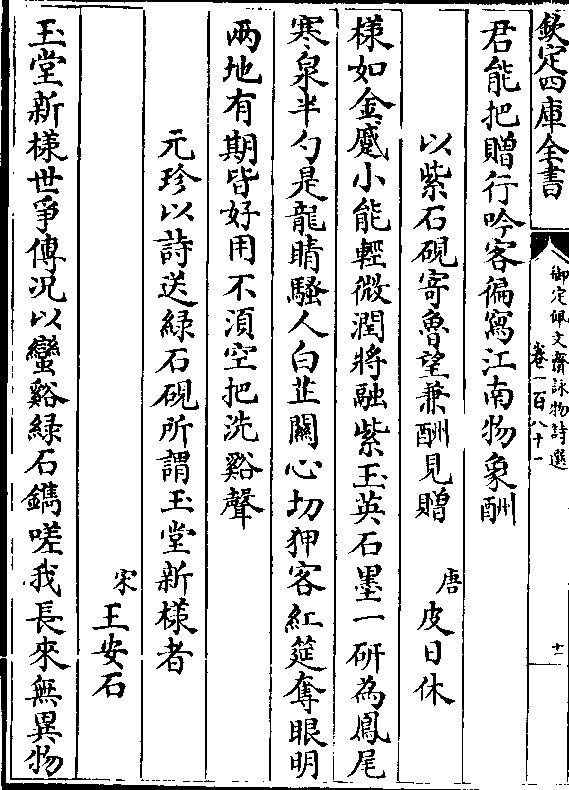 欽定四庫全書
御定佩文齋詠物詩選
卷一百八十一
十一
君能把贈行吟客徧寫江南物象酬
以紫石硯寄魯望兼酬見贈
唐 皮日休
様如金蹙小能輕微潤將融紫玉英石墨一研為鳳尾
寒泉半勺是龍睛騷人白芷關心切狎客紅筵奪眼明
兩地有期皆好用不須空把洗谿聲
元珍以詩送緑石硯所謂玉堂新様者
宋 王安石
玉堂新様世爭傳況以蠻谿緑石鐫嗟我長來無異物